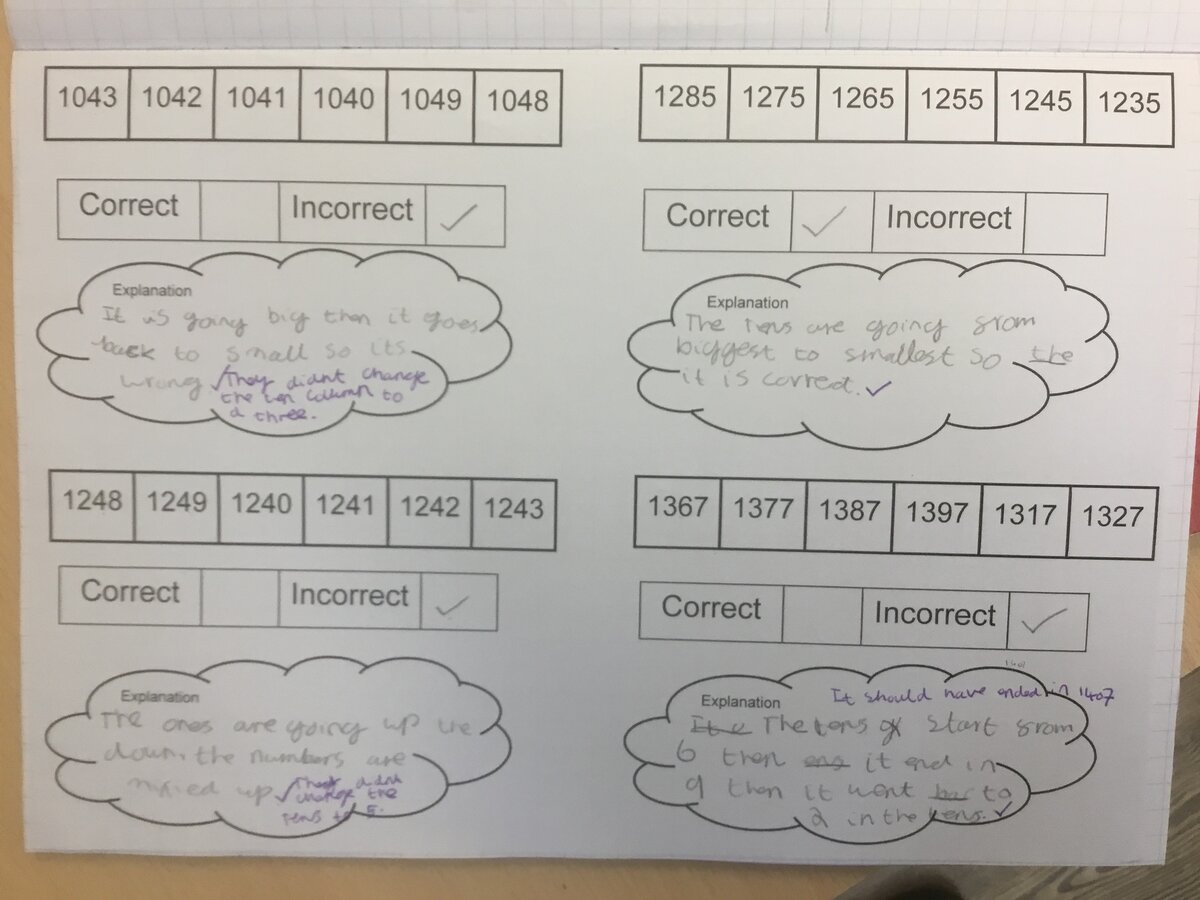 1043 1042 1041 1040 1049 1048
Correct Incorrect ✓
Explanation
It is going big then it goes
back to small so its
wrong ✓ They didnt change
the ten column to
a three.
1285 1275 1265 1255 1245 1235
Correct ✓ Incorrect
Explanation
The tens are going from
biggest to smallest so the
it is correct. ✓
1248 1249 1240 1241 1242 1243
Correct Incorrect ✓
Explanation
The ones are going up the
down, the numbers are
mixed up ✓ They didnt
change the
tens to 5.
1367 1377 1387 1397 1317 1327
Correct Incorrect ✓
Explanation
It should have ended in 1407
The tens start from
6 then it end in
9 then it went to
2 in the tens. ✓